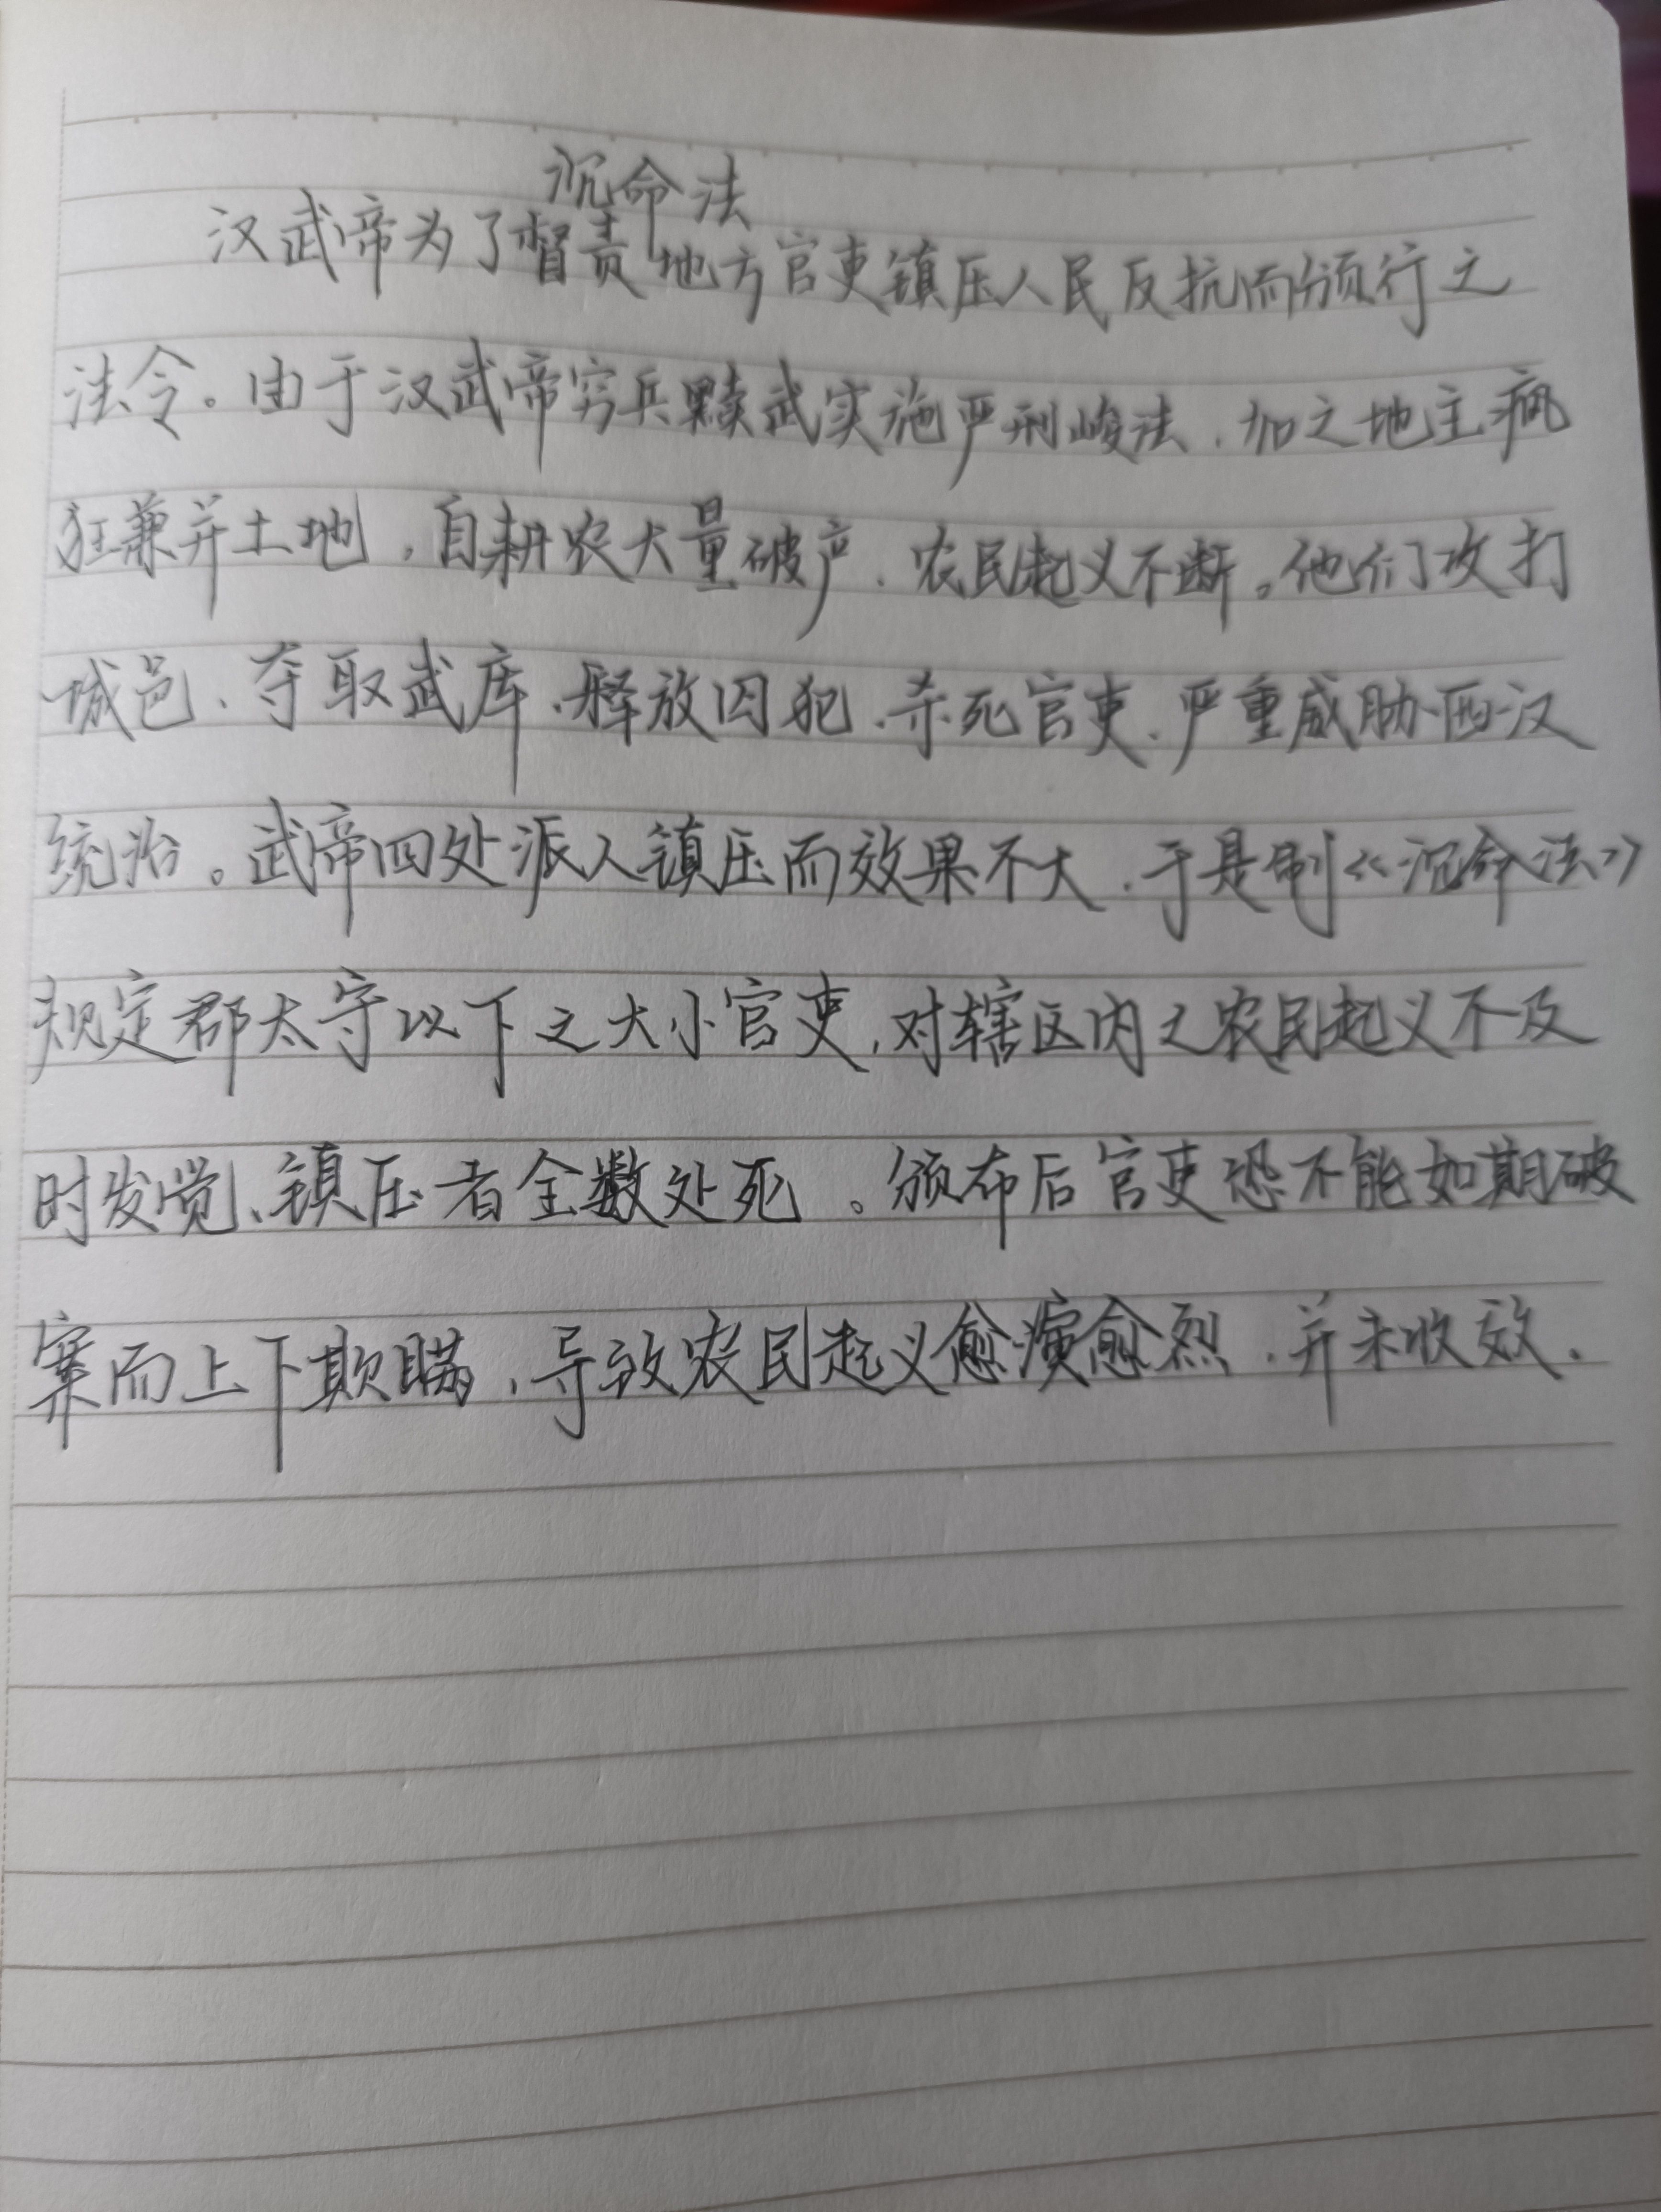 沉命法
汉武帝为了督责地方官吏镇压人民反抗而颁行之
法令。由于汉武帝穷兵黩武实施严刑峻法，加之地主疯
狂兼并土地，自耕农大量破产，农民起义不断。他们攻打
城邑、夺取武库、释放囚犯、杀死官吏、严重威胁西汉
统治。武帝四处派人镇压而效果不大，于是制《沉命法》
规定郡太守以下之大小官吏，对辖区内之农民起义不及
时发觉、镇压者全数处死。颁布后官吏恐不能如期破
案而上下欺瞒，导致农民起义愈演愈烈，并未收效．